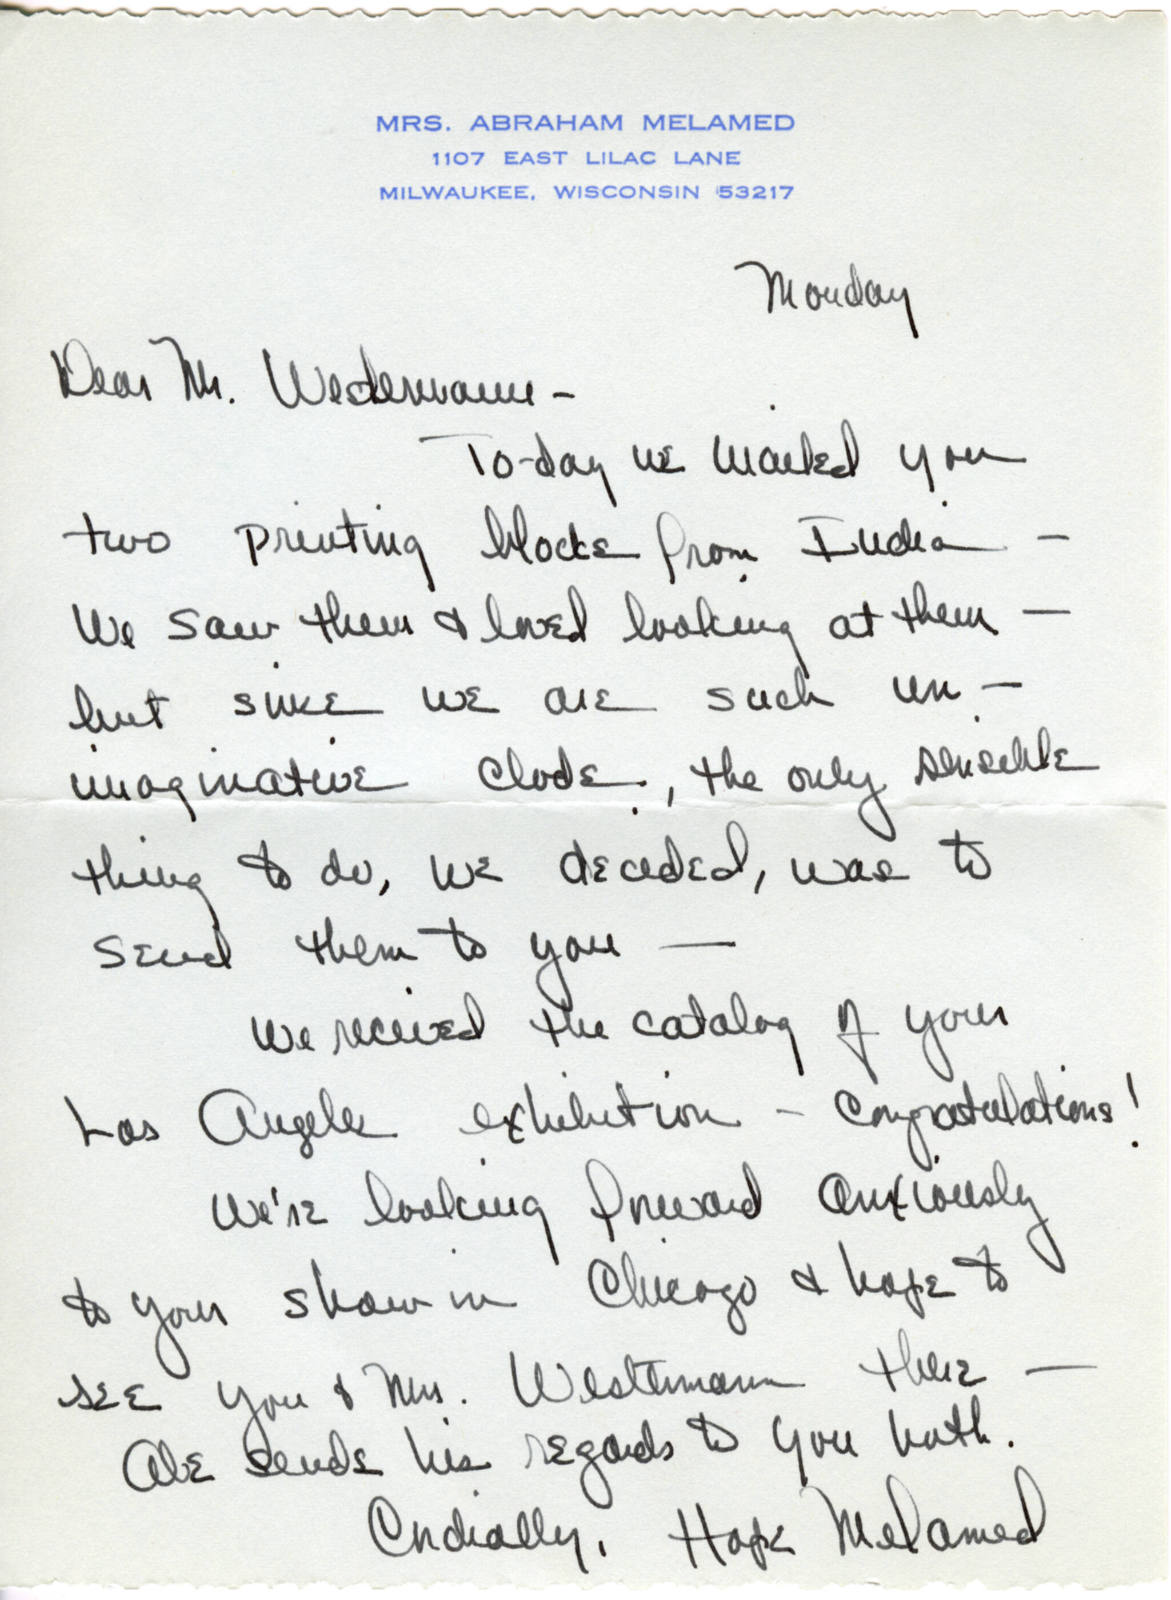 MRS. ABRAHAM MELAMED
1107 EAST LILAC LANE
MILWAUKEE, WISCONSIN 53217
Monday
Dear Mr. Westermann -
To-day we mailed you
two printing blocks from India -
We saw them & loved looking at them -
but since we are such un-
imaginative clods, the only sensible
thing to do, we decided, was to
send them to you —
We received the catalog of your
Los Angeles exhibition - Congratulations!
We're looking forward anxiously
to your show in Chicago & hope to
see you & Mrs. Westermann there —
Abe sends his regards to you both.
Cordially, Hope Melamed